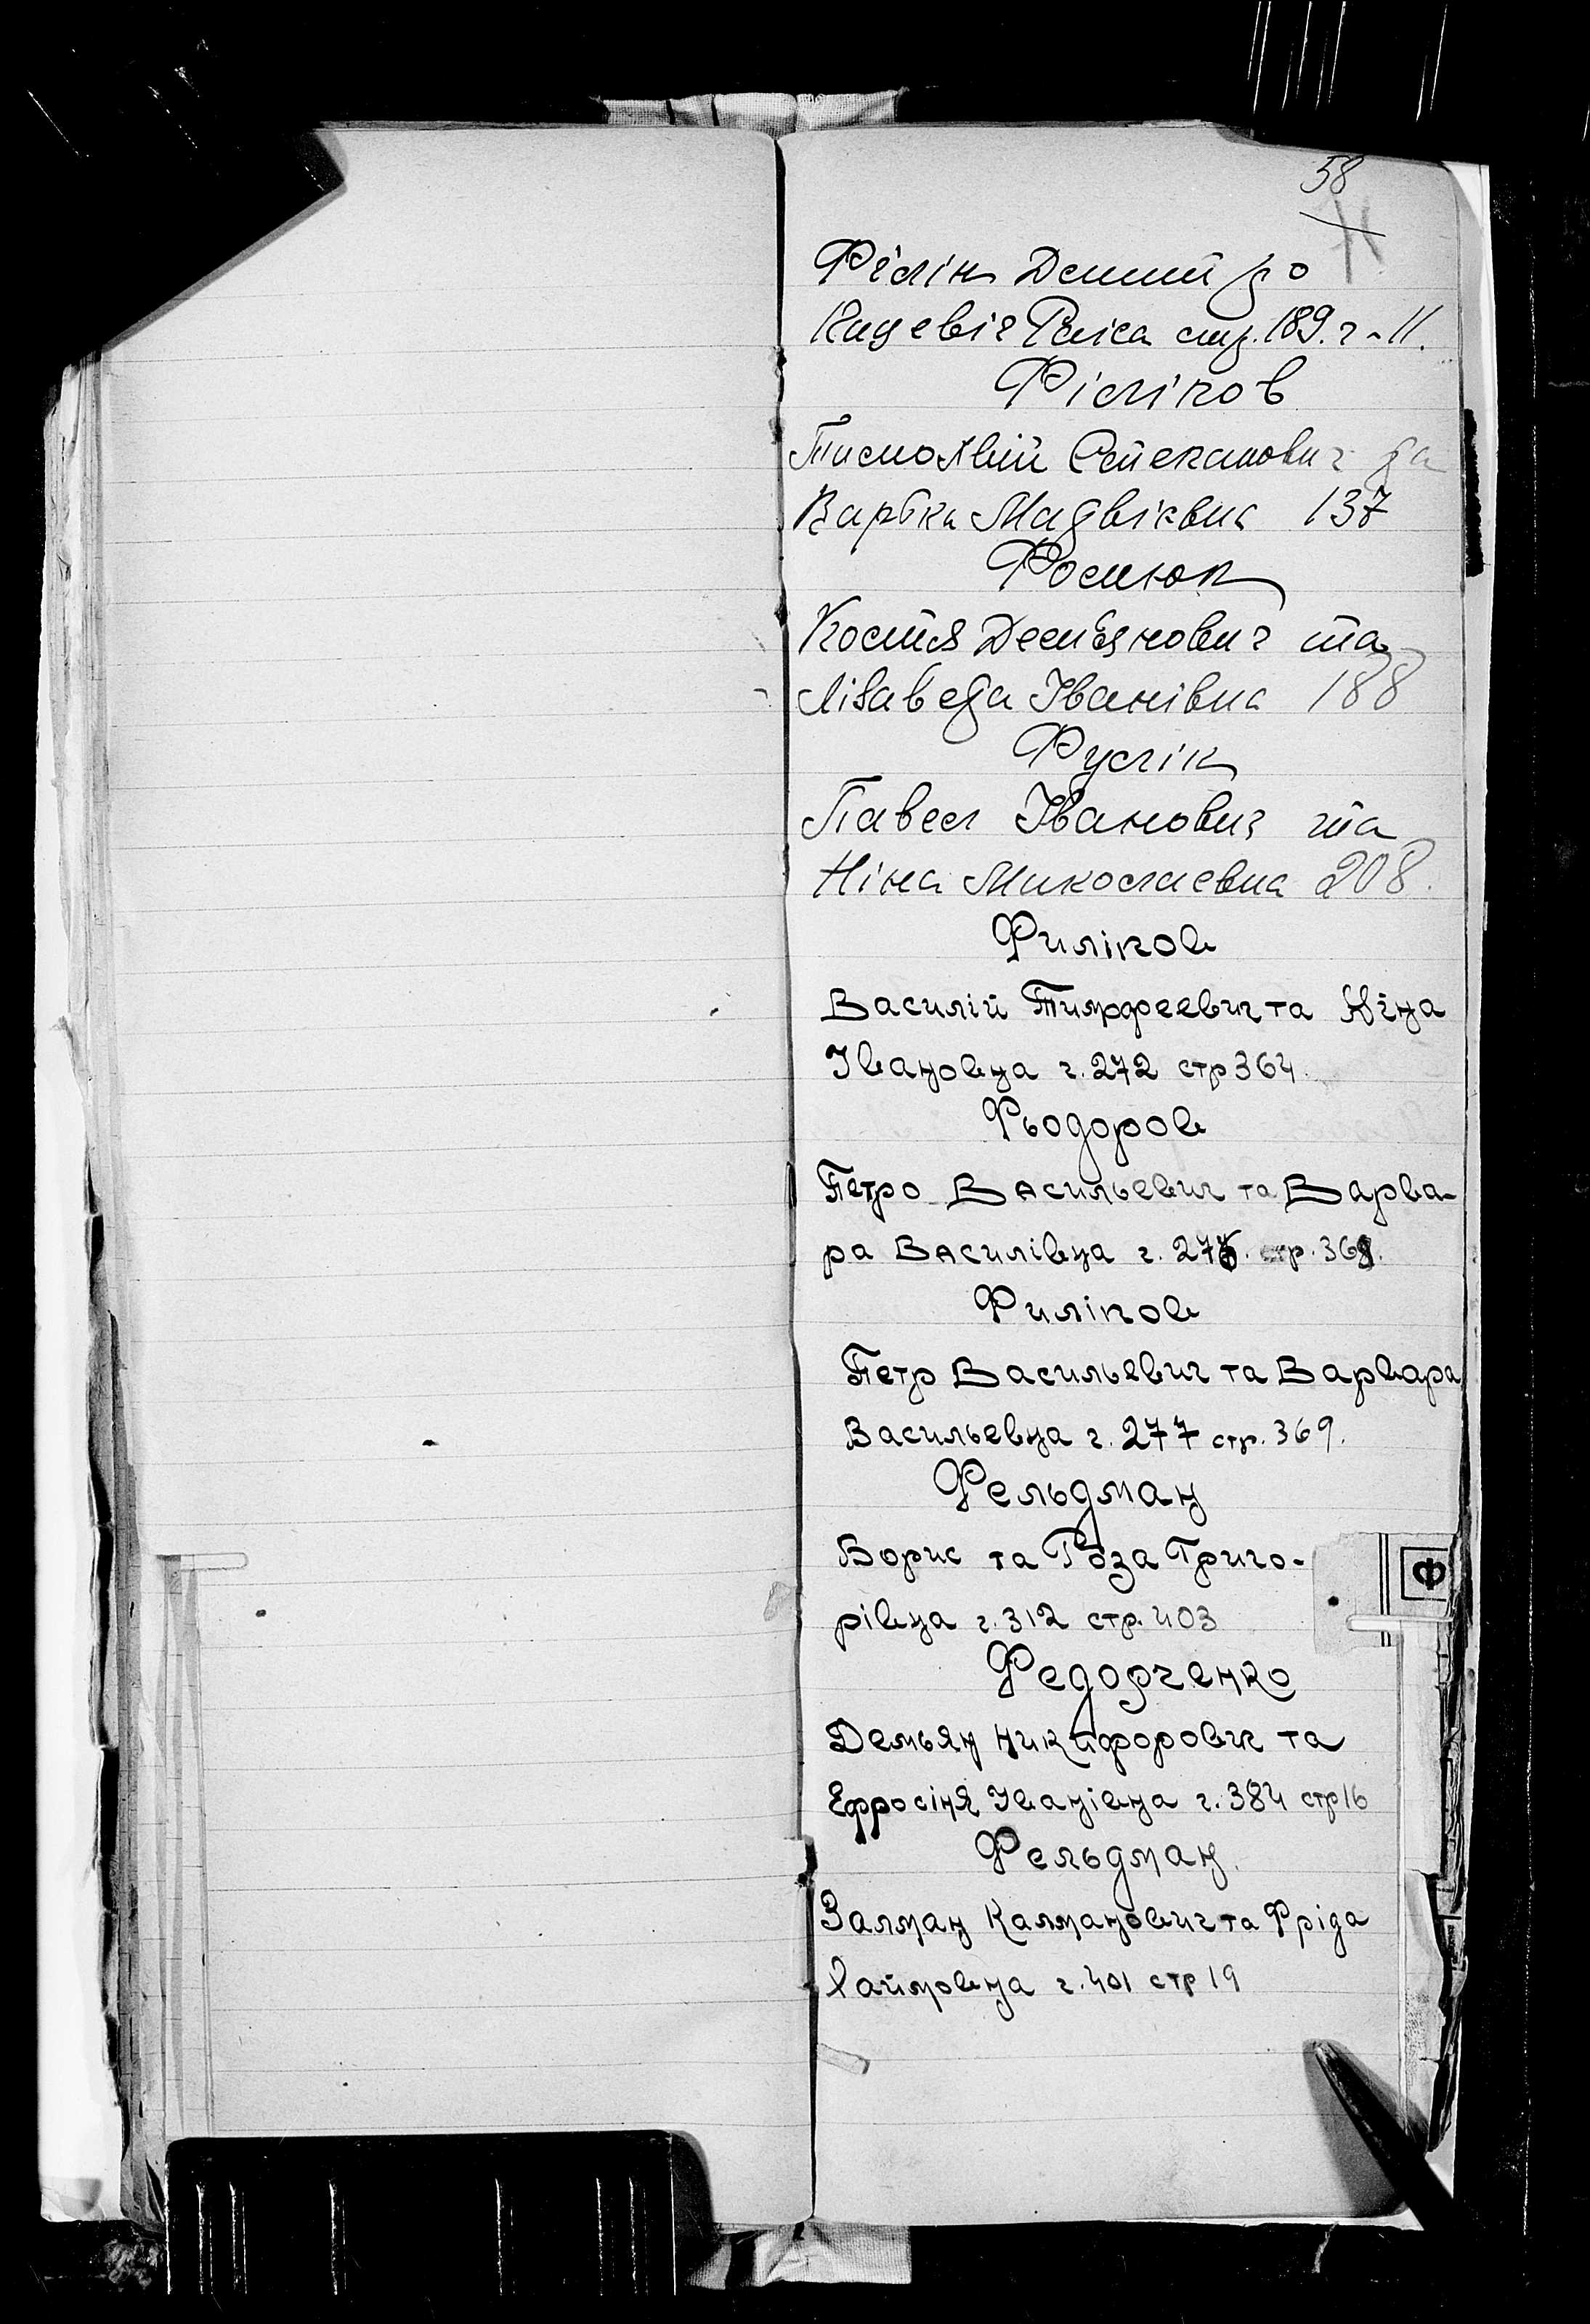 58
Філін Дмит до
Кадевіч Раіса стр. 189. г-11.
Філіков
Тимофвій Степанович да
Варвка Мадвіївна 137
Фомюк
Костя Дем'янович та
Лізаведа Іванівна 188
Фулік
Павел Іванович та
Ніна Миколаевна 208.
Филіков
Василій Тимофеевич та Ніна
Івановна г. 272 стр 364.
Фьодоров
Петро Васильевич та Варва-
ра Василівна г. 276. стр. 368.
Филіков
Петр Васильевич та Варвара
Васильевна г. 277 стр. 369.
Фельдман
Борис та Роза Григо-
рівна г. 312 стр. 403
Ф
Федорченко
Демьян Никифорович та
Ефросіня Іванівна г. 384 стр 16
Фельдман.
Залман Калманович та Фріда
Хаймовна г. 401 стр 19